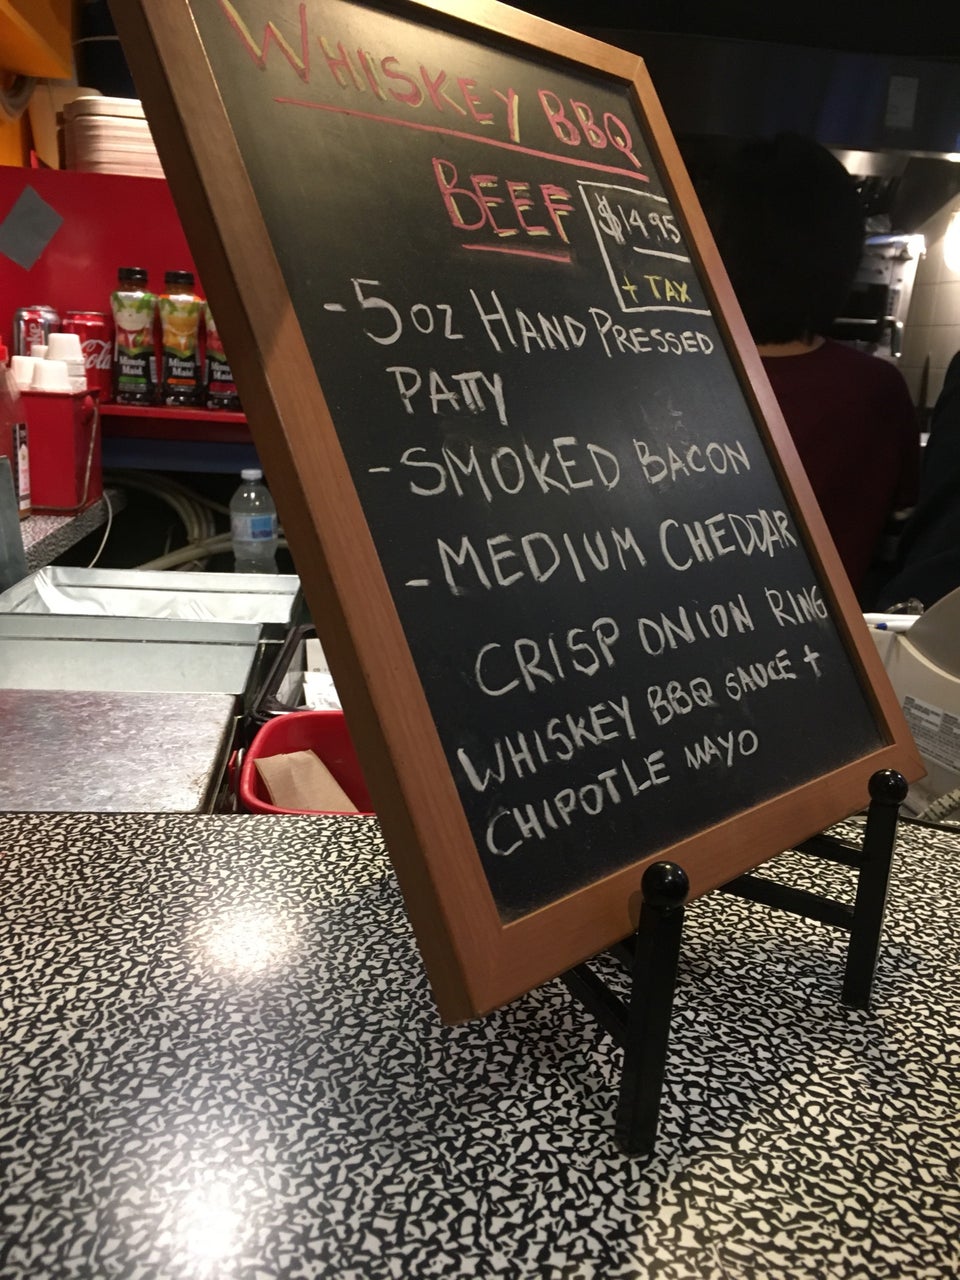 WHISKEY BBQ
BEEF
$14.95
+ TAX
- 5 oz HAND PRESSED
PATTY
- SMOKED BACON
- MEDIUM CHEDDAR
CRISP ONION RING
WHISKEY BBQ SAUCE +
CHIPOTLE MAYO
Minute
Maid
Minute
Maid